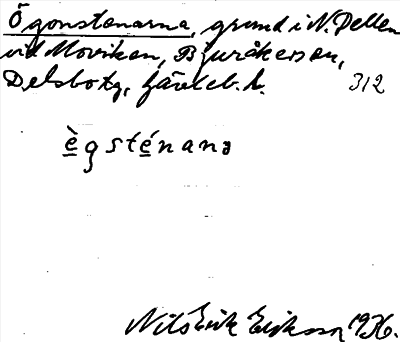 Ögonstenarna, grund i N. Dellen
vid Moviken, Bjuråkers sn,
Delsbo tg, Gävleb. l. 312
ègsténana
Nils Erik Eriksson 1936.